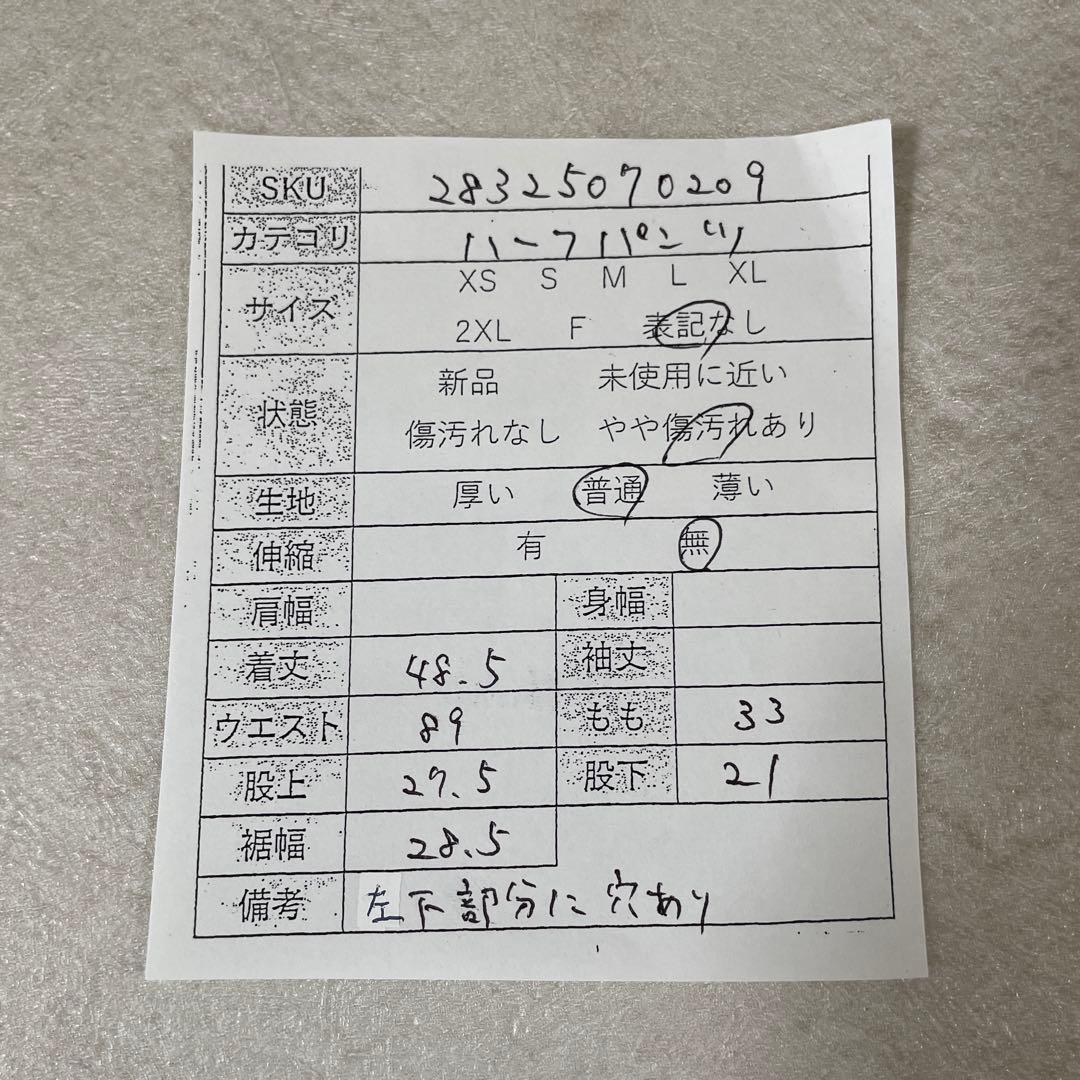 SKU 28325070209
カテゴリ ハーフパンツ
サイズ XS S M L XL
2XL F 表記なし
状態 新品 未使用に近い
傷汚れなし やや傷汚れあり
生地 厚い 普通 薄い
伸縮 有 無
肩幅 身幅
着丈 48.5 袖丈
ウエスト 89 もも 33
股上 27.5 股下 21
裾幅 28.5
備考 左下部分に穴あり